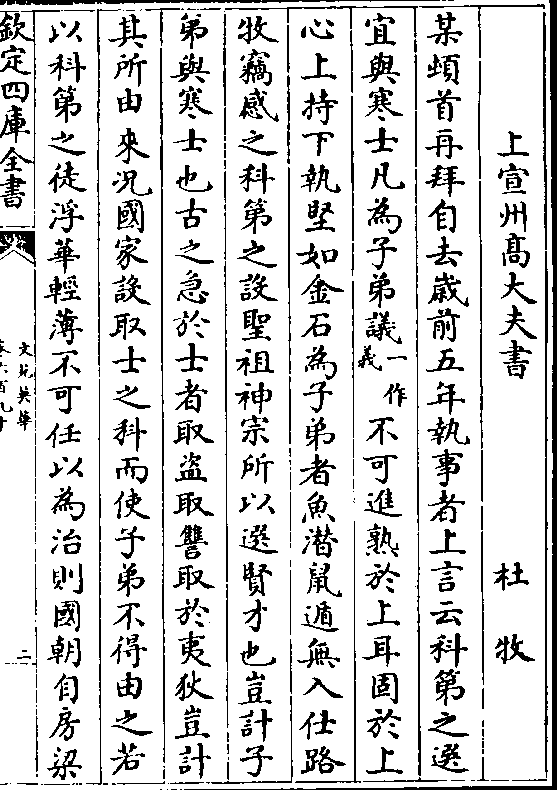 上宣州髙大夫書　杜牧
某頓首再拜自去歳前五年執事者上言云科第之選
宜與寒士凡為子弟議一作義不可進熟於上耳固於上
心上持下執堅如金石為子弟者魚潜鼠遁無入仕路
牧竊惑之科第之設聖祖神宗所以選賢才也豈計子
弟與寒士也古之急於士者取盗取讐取於夷狄豈計
其所由來况國家設取士之科而使子弟不得由之若
以科第之徒浮華輕薄不可任以為治則國朝自房梁
欽定四庫全書
文苑英華
二